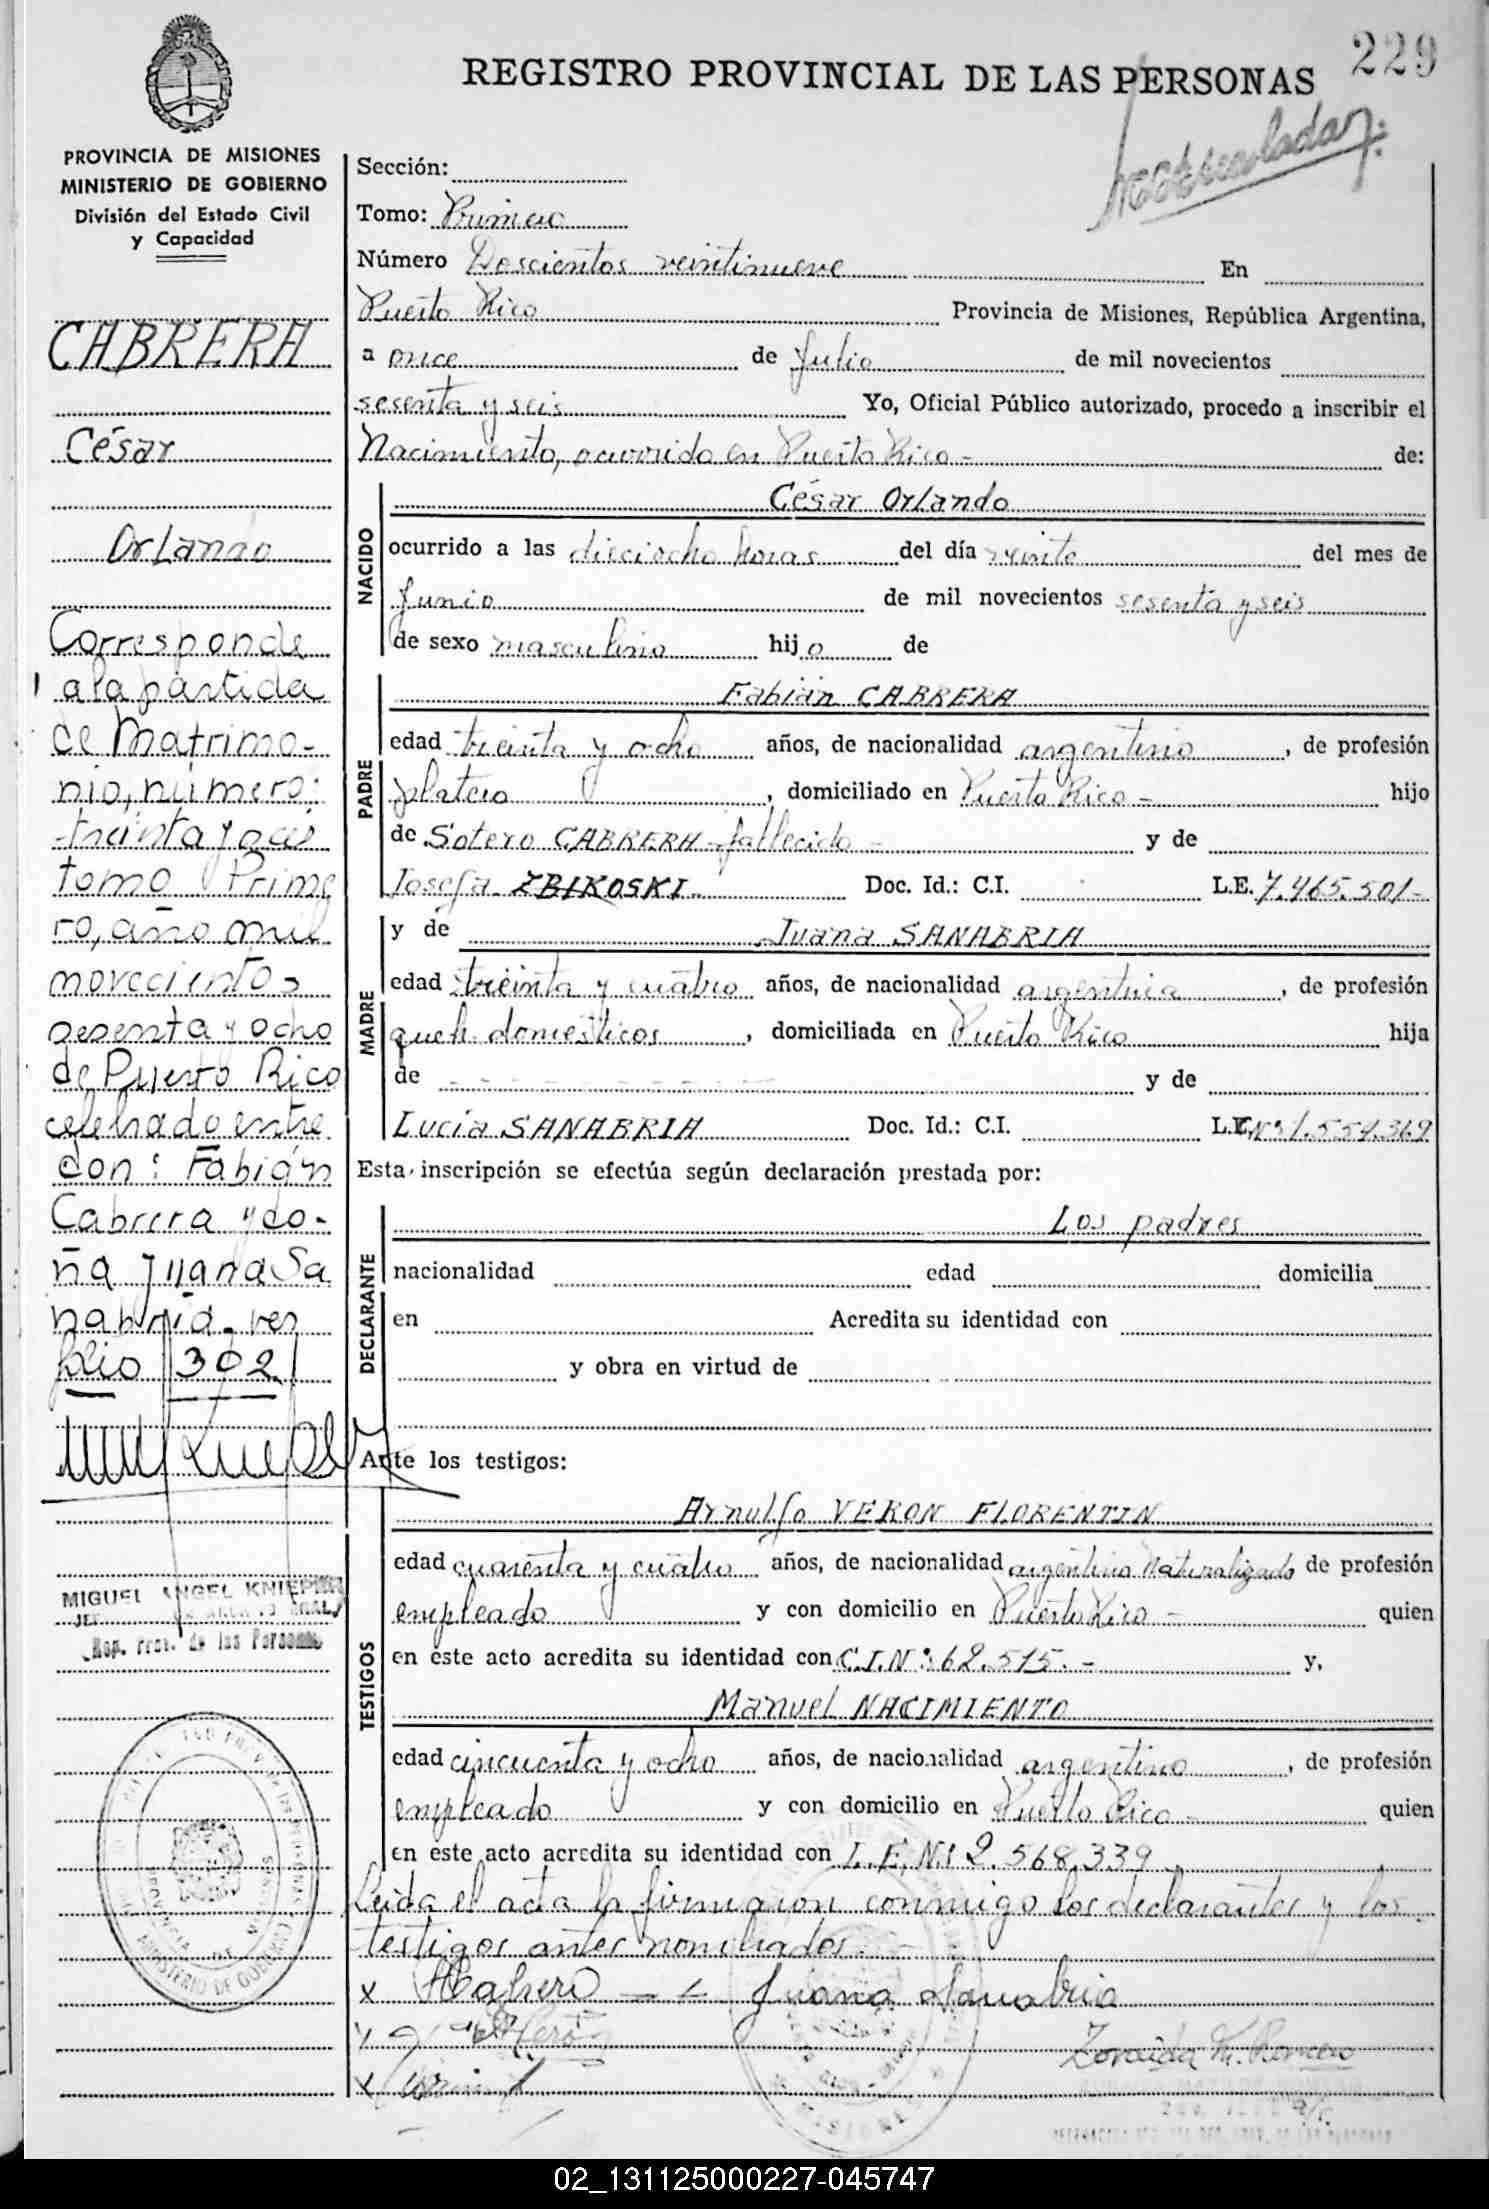 229
REGISTRO PROVINCIAL DE LAS PERSONAS
PROVINCIA DE MISIONES
MINISTERIO DE GOBIERNO
División del Estado Civil
y Capacidad
CABRERA
César
Orlando
Corresponde
a la partida
de Matrimo-
nio, número:
treinta y
tomo Prime
ro, año mil
novecientos
sesenta y ocho
de Puerto Rico
celebrado entre
don: Fabián
Cabrera y do-
ña Juana Sa
nabria. ver
folio 302
MIGUEL ANGEL
Rep. Prov. de las Personas
Sección:
Tomo: Primero
Número Doscientos veintinueve En
Puerto Rico Provincia de Misiones, República Argentina,
a once de Julio de mil novecientos
sesenta y seis Yo, Oficial Público autorizado, procedo a inscribir el
Nacimiento, ocurrido en Puerto Rico - de:
NACIDO
César Orlando
ocurrido a las dieciocho horas del día veinte del mes de
Junio de mil novecientos sesenta y seis
de sexo masculino hijo de
PADRE
Fabián CABRERA
edad treinta y ocho años, de nacionalidad argentino, de profesión
platero, domiciliado en Puerto Rico - hijo
de Sotero CABRERA - fallecido - y de
Josefa ZBIKOSKI - Doc. Id.: C.I. L.E. 7.465.501-
MADRE
y de Juana SANABRIA
edad treinta y cuatro años, de nacionalidad argentina, de profesión
queh. domesticos, domiciliada en Puerto Rico hija
de - - - - - - - - y de
Lucía SANABRIA Doc. Id.: C.I. L.E. Nº 1.554.369
Esta inscripción se efectúa según declaración prestada por:
DECLARANTE
Los padres
nacionalidad edad domicilia
en Acredita su identidad con
y obra en virtud de
Ante los testigos:
TESTIGOS
Arnulfo VERON FLORENTIN
edad cuarenta y cuatro años, de nacionalidad argentino Naturalizado de profesión
empleado y con domicilio en Puerto Rico - quien
en este acto acredita su identidad con C.I.Nº: 62.515. - y,
Manuel NACIMIENTO
edad cincuenta y ocho años, de nacionalidad argentino, de profesión
empleado y con domicilio en Puerto Rico - quien
en este acto acredita su identidad con L.E.Nº: 2.568.339
Leida el acta la firmaron conmigo los declarantes y los
testigos antes nombrados. -
x Juana Sanabria
Zoraida M. Romero
02_131125000227-045747